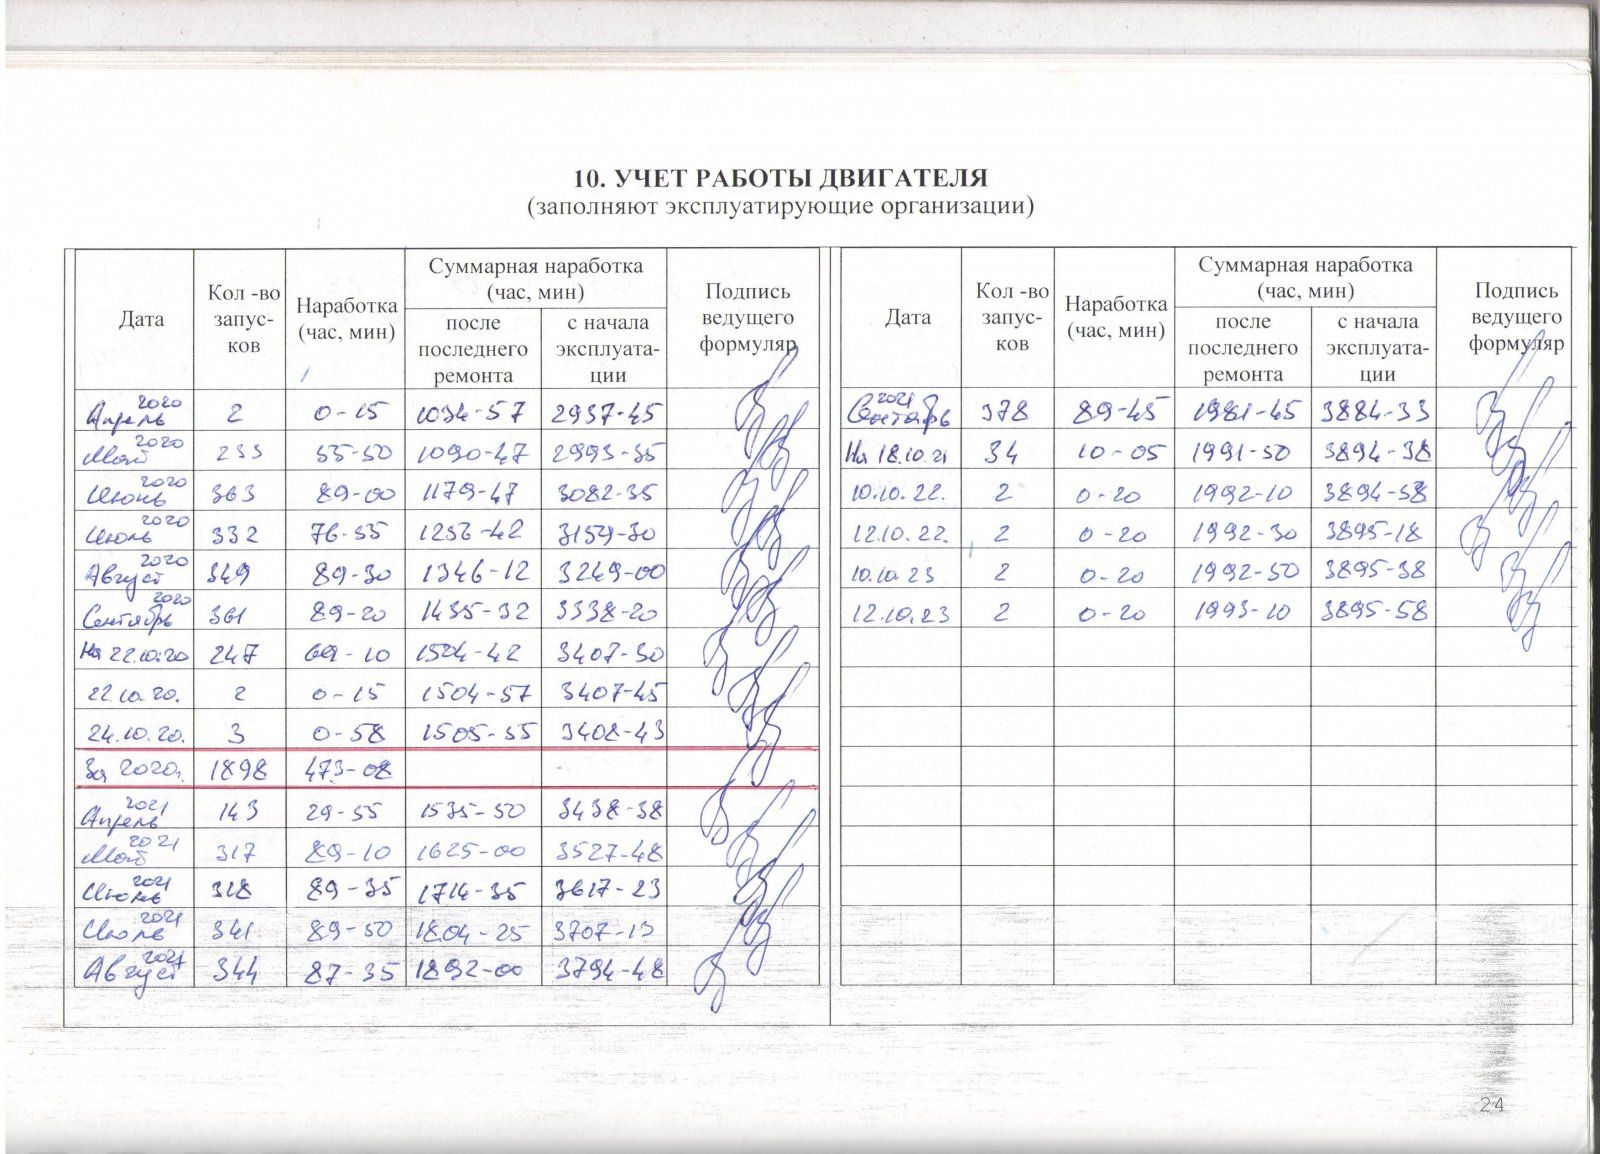 10. УЧЕТ РАБОТЫ ДВИГАТЕЛЯ
(заполняют эксплуатирующие организации)
Дата
Кол -во запус-ков
Наработка (час, мин)
Суммарная наработка (час, мин)
после последнего ремонта
с начала эксплуата-ции
Подпись ведущего формуляр
Апрель 2020 2 0-15 1034-57 2937-45
Май 2020 233 55-50 1090-47 2993-35
Июнь 2020 363 89-00 1179-47 3082-35
Июль 2020 332 76-55 1256-42 3159-30
Август 2020 349 89-30 1346-12 3249-00
Сентябрь 2020 361 89-20 1435-32 3338-20
На 22.10.20 247 69-10 1504-42 3407-30
22.10.20. 2 0-15 1504-57 3407-45
24.10.20. 3 0-58 1505-55 3408-43
За 2020г. 1898 473-08
Апрель 2021 143 29-55 1535-50 3438-38
Май 2021 317 89-10 1625-00 3527-48
Июнь 2021 318 89-35 1714-35 3617-23
Июль 2021 341 89-50 1804-25 3707-13
Август 2021 344 87-35 1892-00 3794-48
Дата
Кол -во запус-ков
Наработка (час, мин)
Суммарная наработка (час, мин)
после последнего ремонта
с начала эксплуата-ции
Подпись ведущего формуляр
Сентябрь 2021 378 89-45 1981-45 3884-33
На 18.10.21 34 10-05 1991-50 3894-38
10.10.22. 2 0-20 1992-10 3894-58
12.10.22. 2 0-20 1992-30 3895-18
10.10.23 2 0-20 1992-50 3895-38
12.10.23 2 0-20 1993-10 3895-58
24